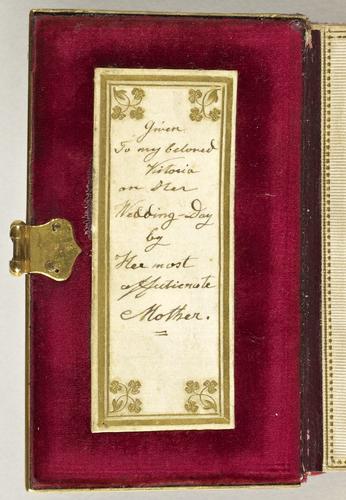 Given
To my beloved
Vitoria
on Her
Wedding-Day
by
Her most
affectionate
Mother.